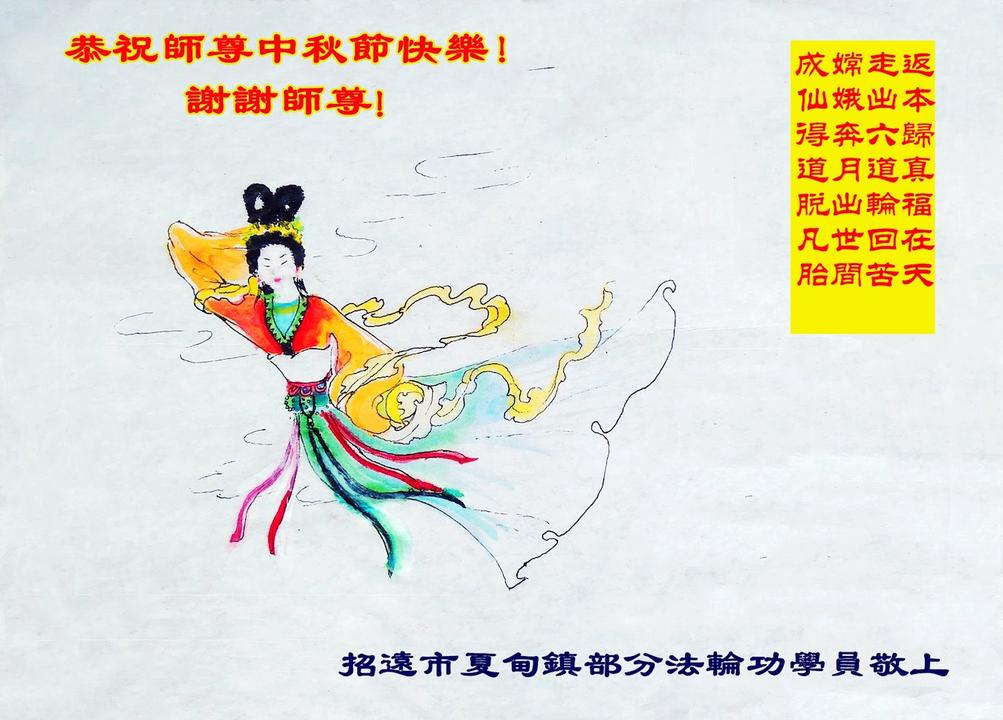 恭祝師尊中秋節快樂!
謝謝師尊!
返本歸真福在天
走出六道輪回苦
嫦娥奔月出世間
成仙得道脫凡胎
招遠市夏甸鎮部分法輪功學員敬上